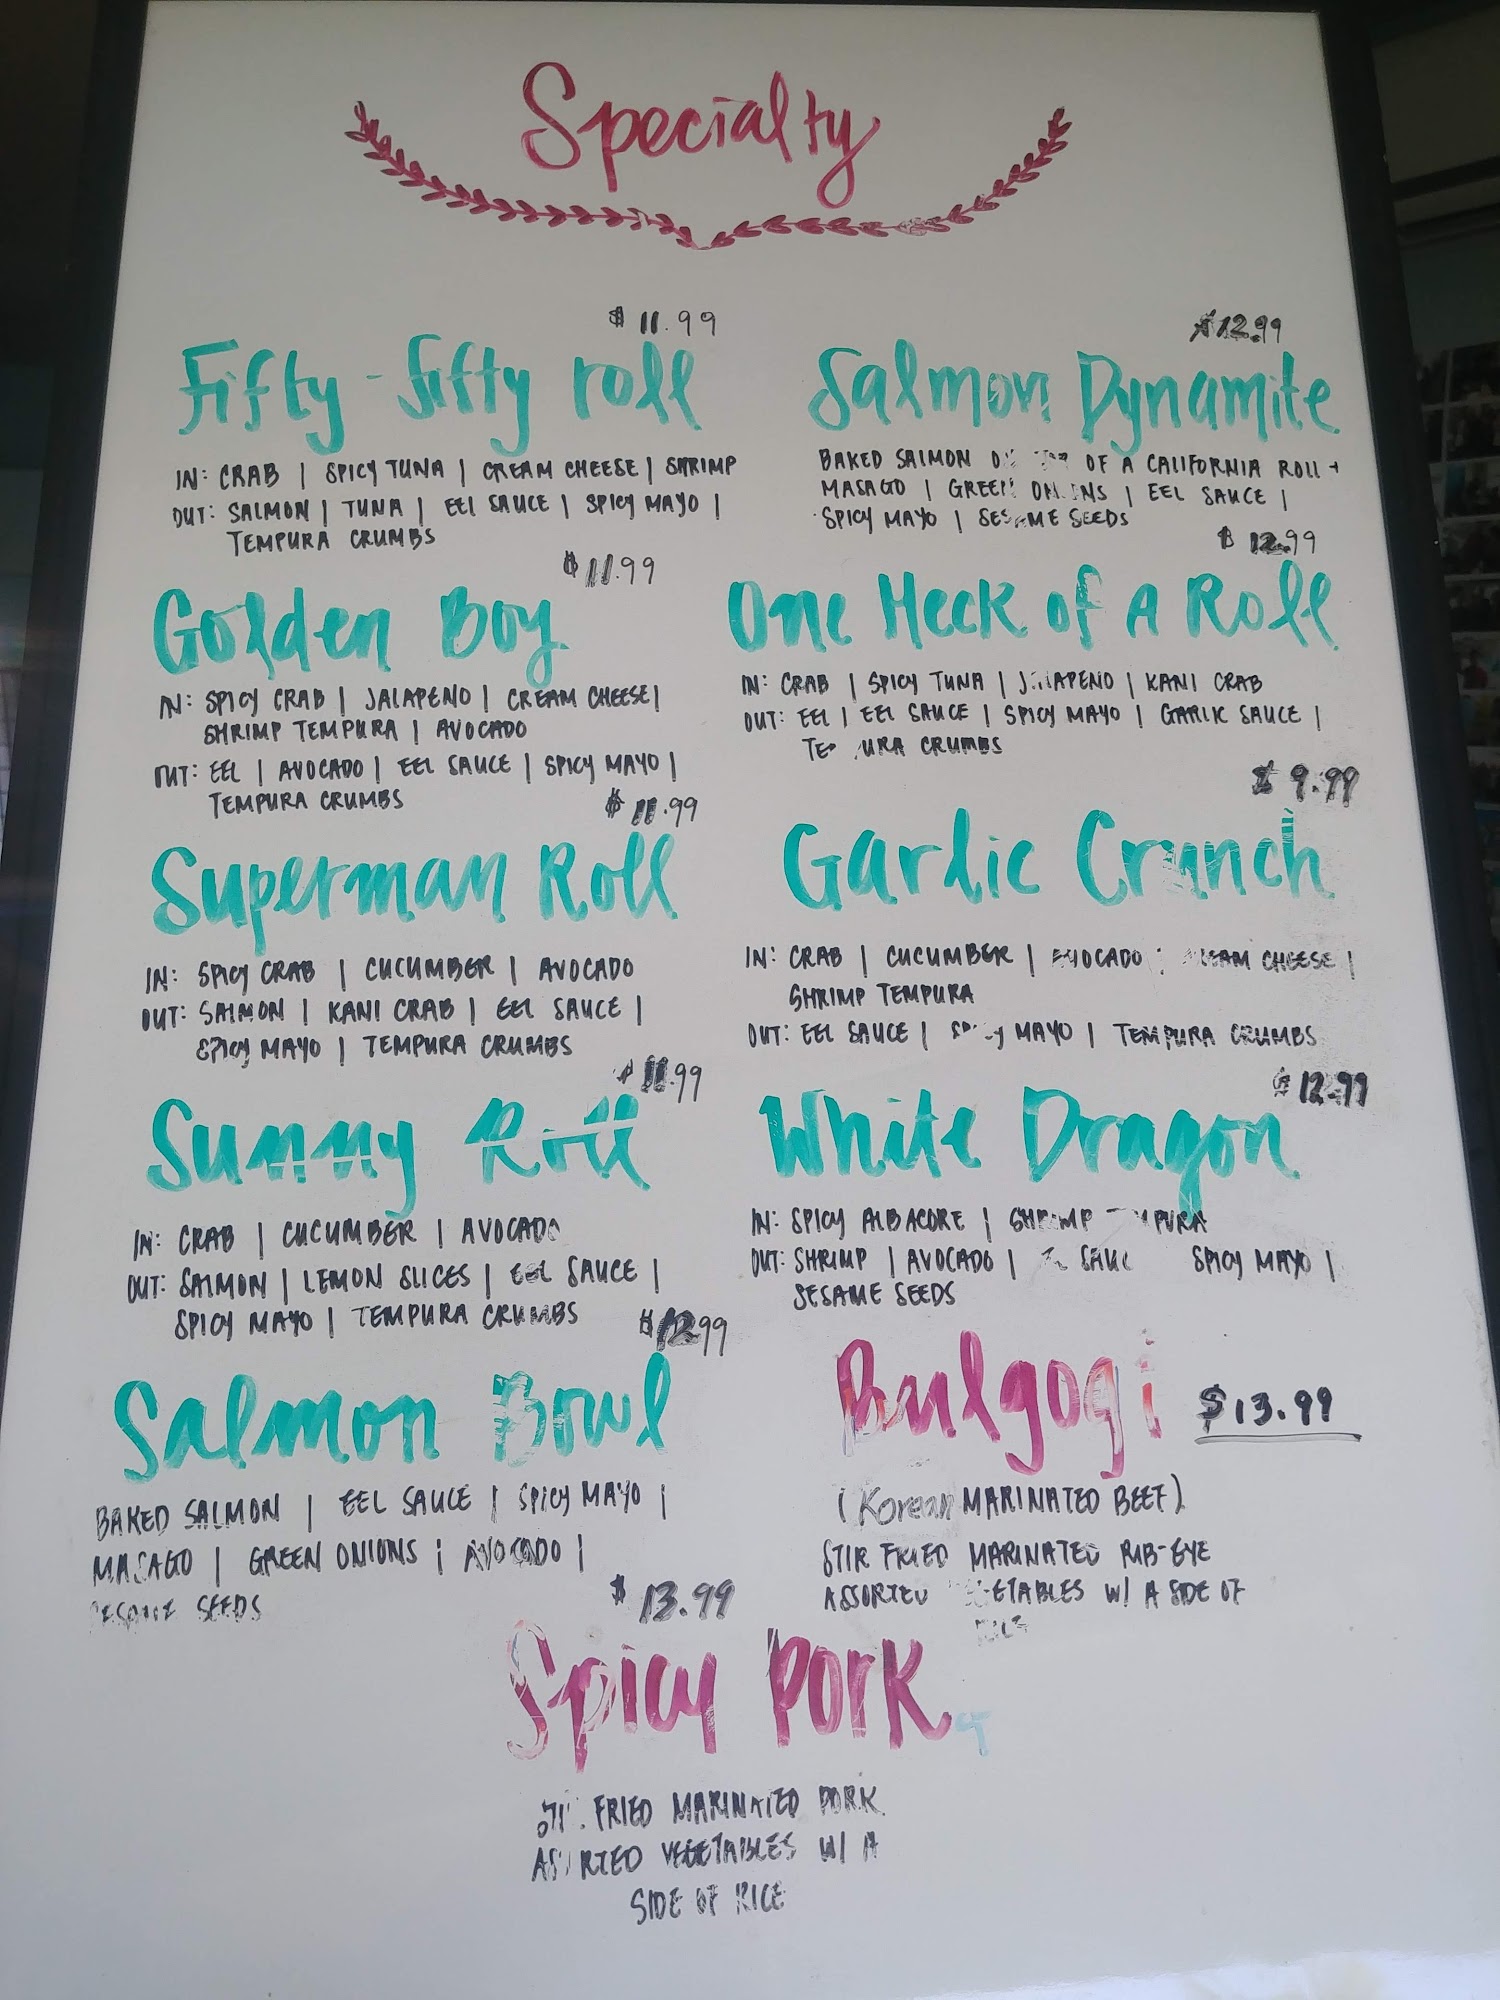 Specialty
$11.99
Fifty-fifty roll
IN: CRAB | SPICY TUNA | CREAM CHEESE | SHRIMP
OUT: SALMON | TUNA | EEL SAUCE | SPICY MAYO |
TEMPURA CRUMBS
$11.99
Golden Boy
IN: SPICY CRAB | JALAPENO | CREAM CHEESE |
SHRIMP TEMPURA | AVOCADO
OUT: EEL | AVOCADO | EEL SAUCE | SPICY MAYO |
TEMPURA CRUMBS
$11.99
Superman Roll
IN: SPICY CRAB | CUCUMBER | AVOCADO
OUT: SALMON | KANI CRAB | EEL SAUCE |
SPICY MAYO | TEMPURA CRUMBS
$11.99
Sunny Roll
IN: CRAB | CUCUMBER | AVOCADO
OUT: SALMON | LEMON SLICES | EEL SAUCE |
SPICY MAYO | TEMPURA CRUMBS
$12.99
Salmon Bowl
BAKED SALMON | EEL SAUCE | SPICY MAYO |
MASAGO | GREEN ONIONS | AVOCADO |
SESAME SEEDS
$12.99
Salmon Dynamite
BAKED SALMON ON OF A CALIFORNIA ROLL +
MASAGO | GREEN ONIONS | EEL SAUCE |
SPICY MAYO | SESAME SEEDS
$12.99
One Heck of A Roll
IN: CRAB | SPICY TUNA | JALAPENO | KANI CRAB
OUT: EEL | EEL SAUCE | SPICY MAYO | GARLIC SAUCE |
TEMPURA CRUMBS
$9.99
Garlic Crunch
IN: CRAB | CUCUMBER | AVOCADO | CREAM CHEESE |
SHRIMP TEMPURA
OUT: EEL SAUCE | SPICY MAYO | TEMPURA CRUMBS
$12.99
White Dragon
IN: SPICY ALBACORE | SHRIMP TEMPURA
OUT: SHRIMP | AVOCADO | SAUCE SPICY MAYO |
SESAME SEEDS
Bulgogi $13.99
(Korean MARINATED BEEF)
STIR FRIED MARINATED RIB-EYE
ASSORTED VEGETABLES W/ A SIDE OF
$13.99
Spicy Pork
FRIED MARINATED PORK
ASSORTED VEGETABLES W/ A
SIDE OF RICE